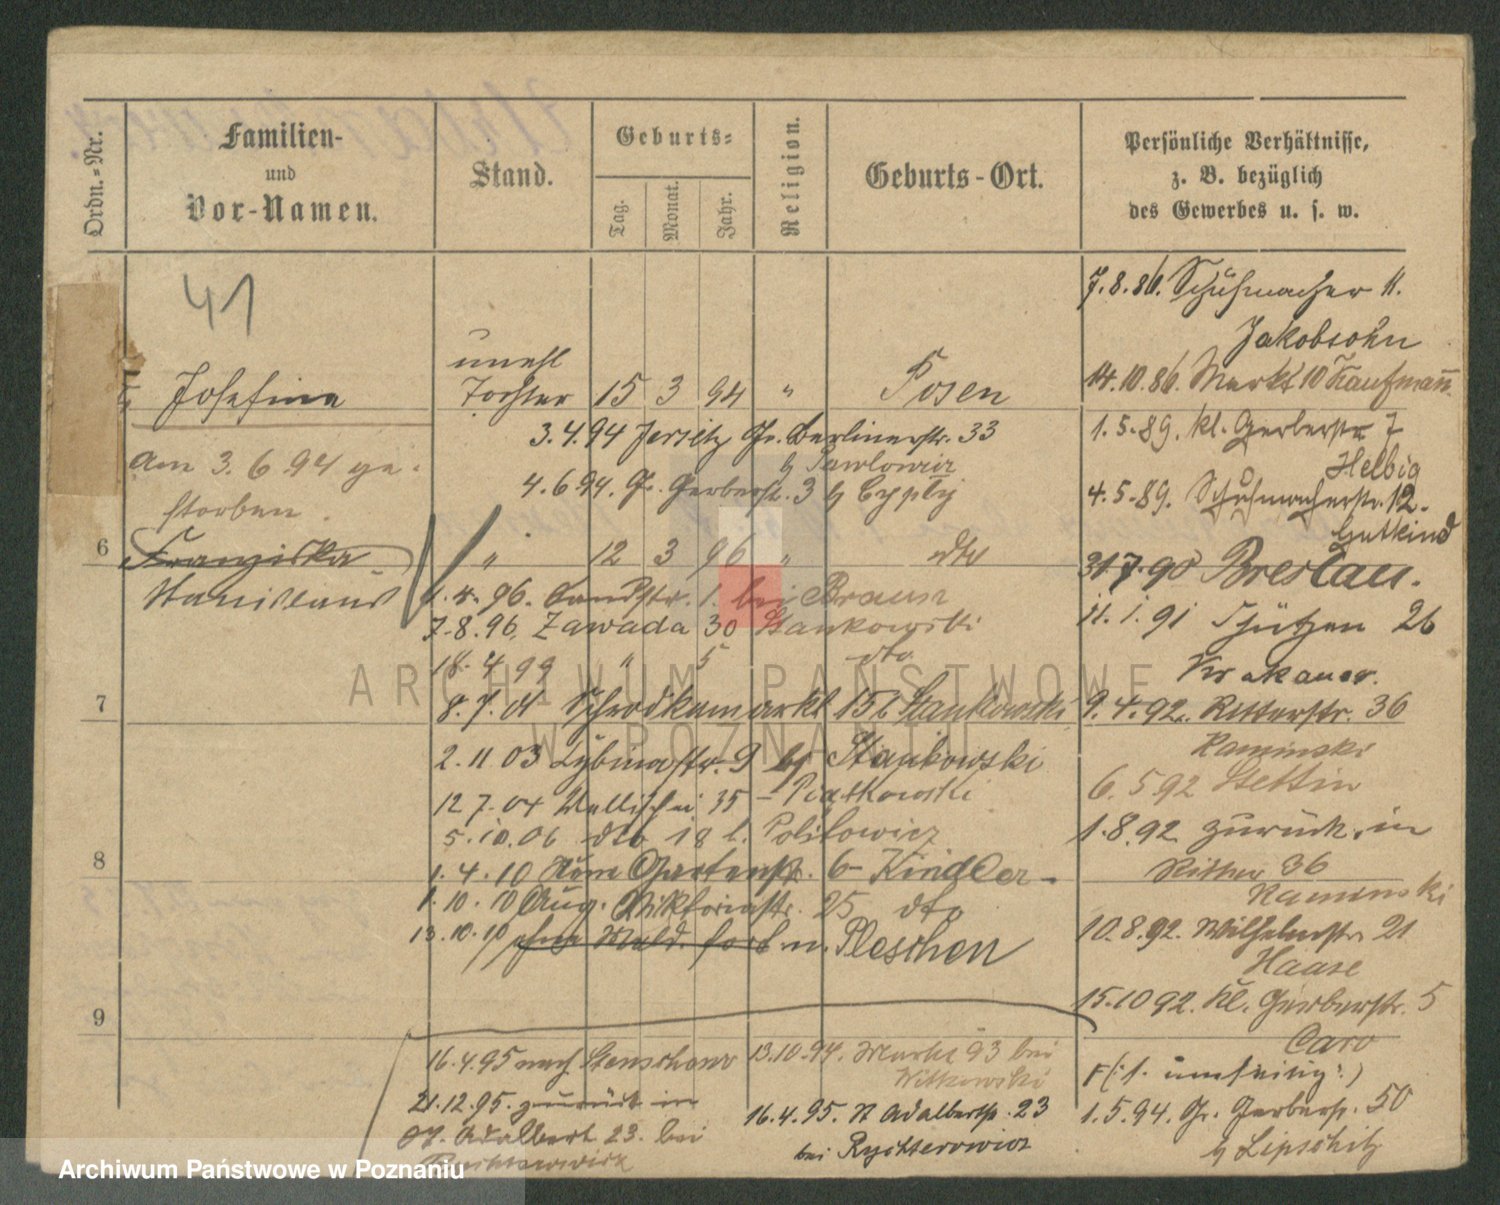 Ordn.-Nr.
Familien-
und
Vor-Namen.
Stand.
Geburts-
Tag.
Monat.
Jahr.
Religion.
Geburts-Ort.
Persönliche Verhältnisse,
z. B. bezüglich
des Gewerbes u. s. w.
41
7.8.86. Schuhmacher 11.
Jakobsohn
unehl
Josefina Tochter 15 3 94 " Posen
14.10.86. Markt 10 Kaufmann
3.4.94 Jersitz Gr. Berlinerstr. 33
b Pawlowicz
1.5.89. kl. Gerberstr 7
Helbig
am 3.6.94 ge-
storben.
4.6.94. Gr. Gerberstr. 3 b
4.5.89. Schuhmacherstr. 12.
Gutkind
6 Franziska " 12 3 96 " dto
Stanislaus
31 7.90 Breslau.
4.4.96. Landstr. 1. bei Braun
7.8.96. Zawada 30 Stankowski
11.1.91 Schützen 26
Krakauer.
18.4 99 " 5 dto
7
8.7.01 Schrodkamarkt 15 b Stankowski
9.4.92. Ritterstr. 36
Kaminski
2.11 03 Lybinastr. 9 bj Stankowski
6.5 92 Stettin
12 7.04 Wallischei 35 - Piatkowski
1.8.92 zurück, in
Ritter 36
Kaminski
5.10.06 dto 18 b.
8
1.4.10 Gartenstr. 6 - Kindler -
1.10.10 Aug. Viktoriastr. 25 dto
10.8.92. Wilhelmstr. 21
Haase
13.10.10 ohne Meld. fort n. Pleschen
15.10 92. Kl. Gerberstr. 5
Caro
9
16.4.95 nach Stenschewo
13.10.94. Markt 93 bei
Witkowski
21.12.95. zurück in
Adalbert 23. bei
16.4.95. St Adalbertstr. 23
bei Rychterowicz
1.5.94. Gr. Gerberstr. 50
b Lipschitz
ARCHIWUM PAŃSTWOWE
W POZNANIU
Archiwum Państwowe w Poznaniu